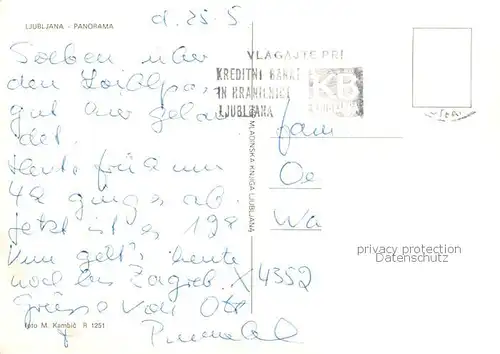 d. 25. 5
LJUBLJANA - PANORAMA
Soeben über
den Loiblpa
gut hier gelan
det.
Heute früh um
4h ging's ab.
Jetzt ist es 12h
Nun geht's heute
noch bis Zagreb.
Grüsse von
foto M. Kambič R 1251
MLADINSKA KNJIGA LJUBLJANA
VLAGAJTE PRI
KREDITNI BANKI
IN HRANILNICI
LJUBLJANA
KB
Fam
Oe
Wa
X 4352
privacy protection
Datenschutz